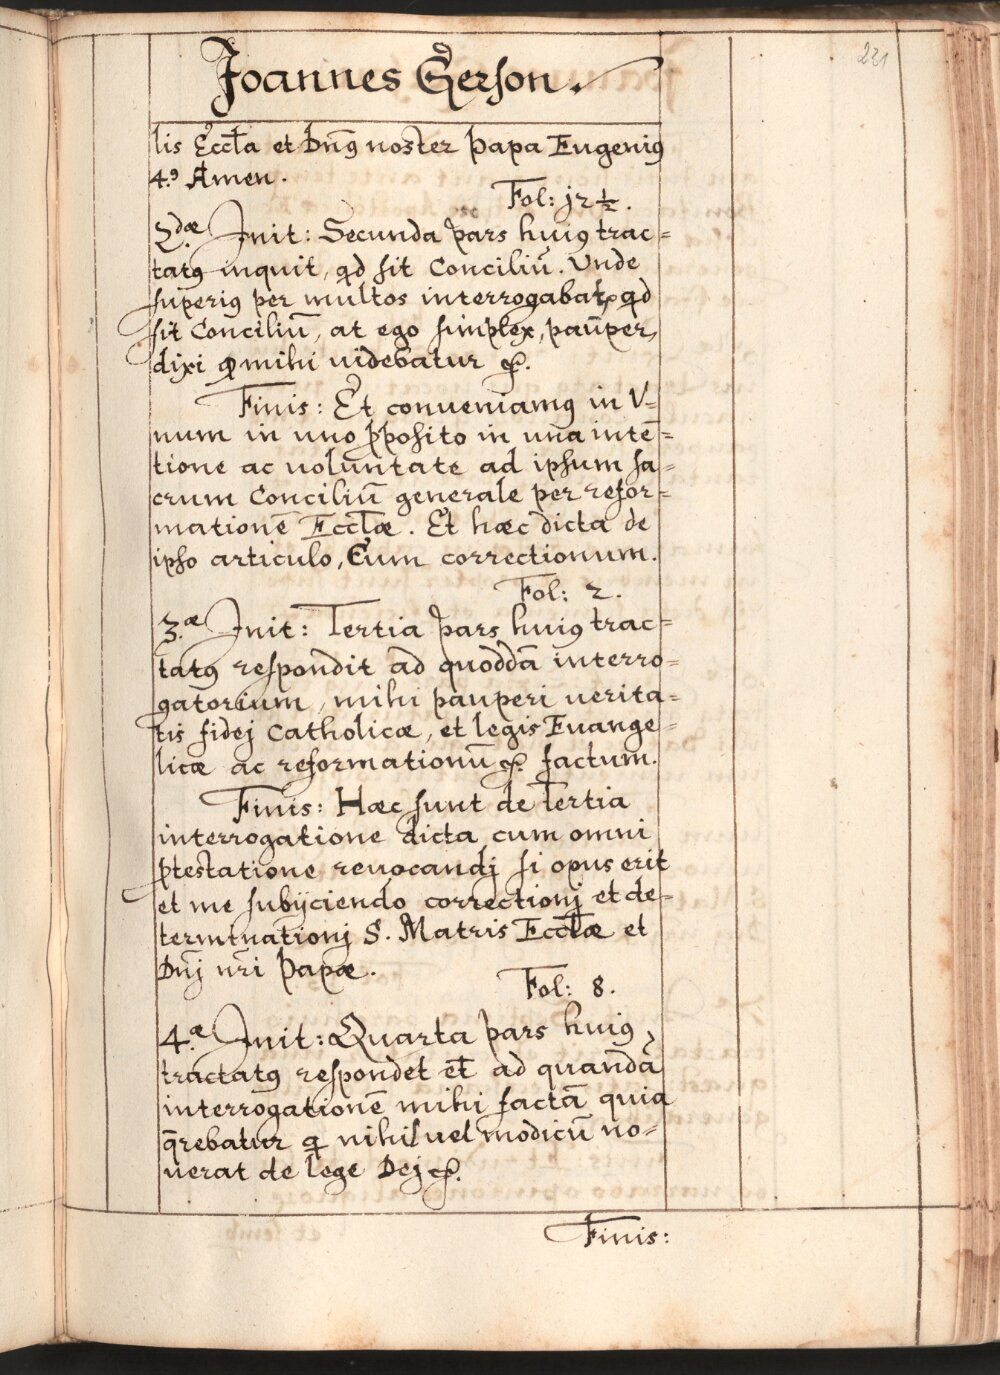 231
Joannes Gerson.
lis Eccl̄a et Dn̄ꝰ noster Papa Eugeniꝰ
4.ꝰ Amen.
Fol: j2 ½.
2.dæ Init: Secunda pars huiꝰ trac=
tatꝰ inquit, qd sit Conciliū. Unde
superiꝰ per multos interrogabatr, qd
sit Conciliū, at ego simplex, pauper,
dixi ꝙ mihi videbatur &.
Finis: Et conveniamꝰ in V=
num in uno ꝓposito in una intē=
tione ac voluntate ad ipsum sa=
crum Conciliū generale per refor=
mationē Eccl̄æ. Et hæc dicta de
ipso articulo, Cum correctionum.
Fol: 2.
3.æ Init: Tertia pars huiꝰ trac=
tatꝰ respondit ad quoddā interro=
gatorium, mihi pauperi verita=
tis fidej Catholicæ, et legis Euange=
licæ ac reformationū &. factum.
Finis: Hæc sunt de Tertia
interrogatione dicta, cum omni
ꝓtestatione reuocandj si opus erit
et me subijciendo correctionj et de=
terminationj S. Matris Eccl̄æ et
Dnj nr̄i Papæ.
Fol: 8.
4.æ Init: Quarta pars huiꝰ,
tractatꝰ respondet et̄ ad quandā
interrogationē mihi factā quia
q̄rebatur ꝙ nihil vel modicū no=
uerat de lege Dej &.
Finis: